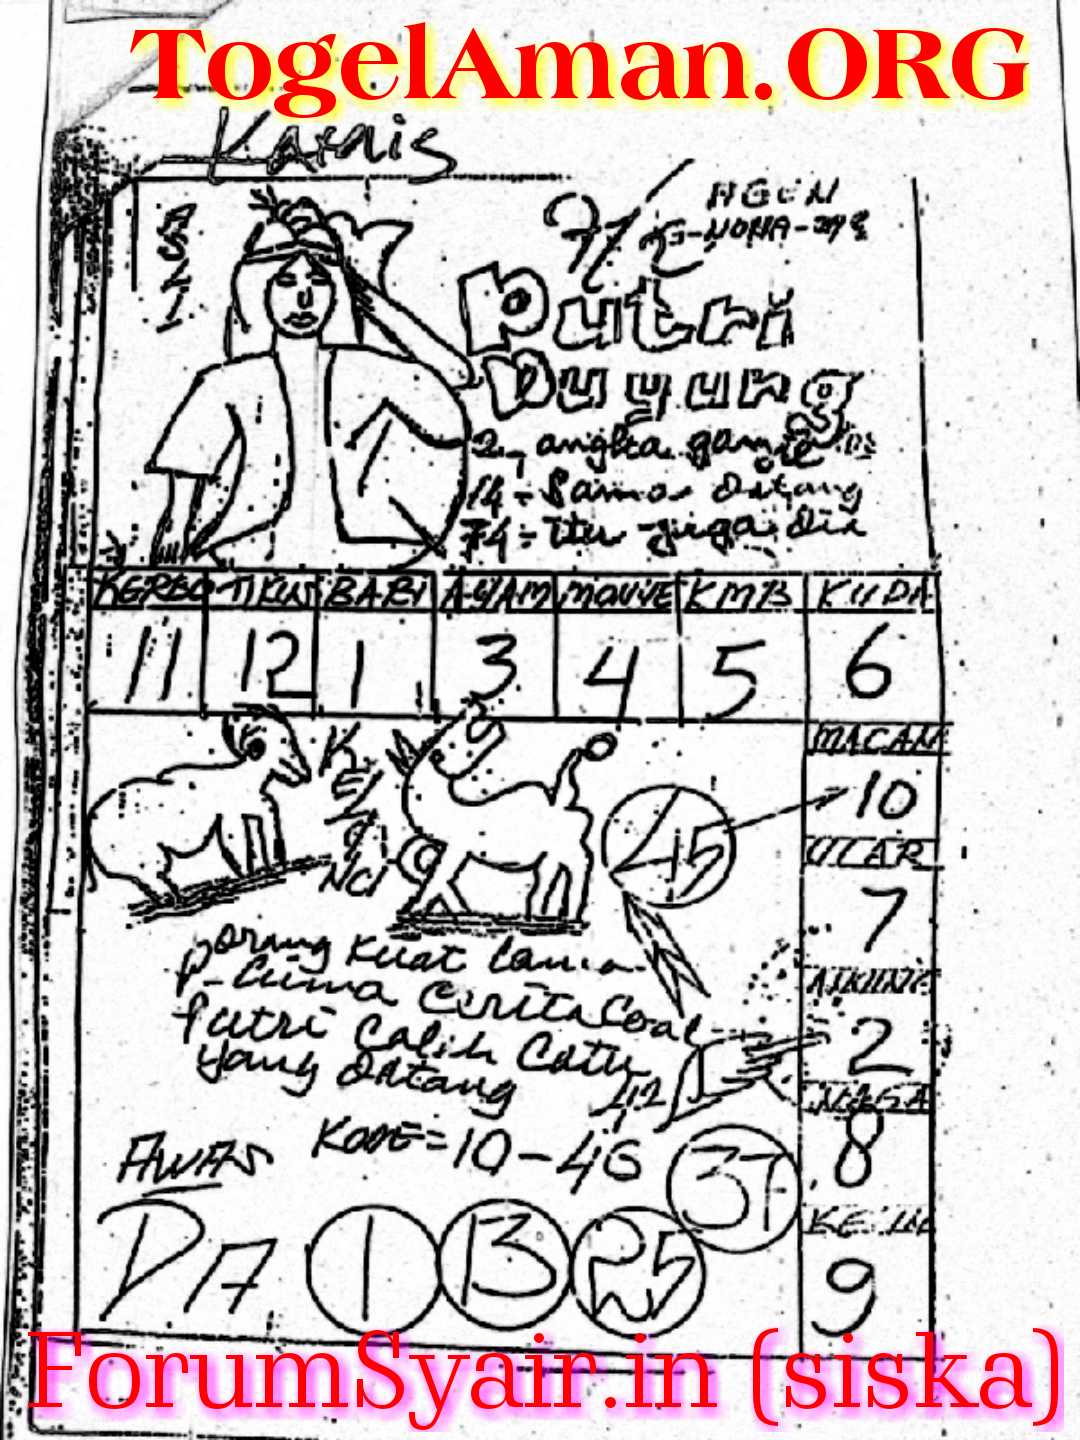 TogelAman.ORG
Kamis
ASLI
AGEN
Putri
Duyung
2 - angka ganjil
14 - Sama Datang
74 - Itu juga Dia
KERBO TIKUS BABI AYAM MONYE KMB KUDA
11 12 1 3 4 5 6
MACAN
10
ULAR
7
2
NAGA
8
9
KELINCI
45
orang Kuat Lama
P- Cuma Cerita Soal
Putri Calih Catu
yang Datang
42
KODE = 10 - 46
AWAS
37
DA 1 13 25
ForumSyair.in (siska)